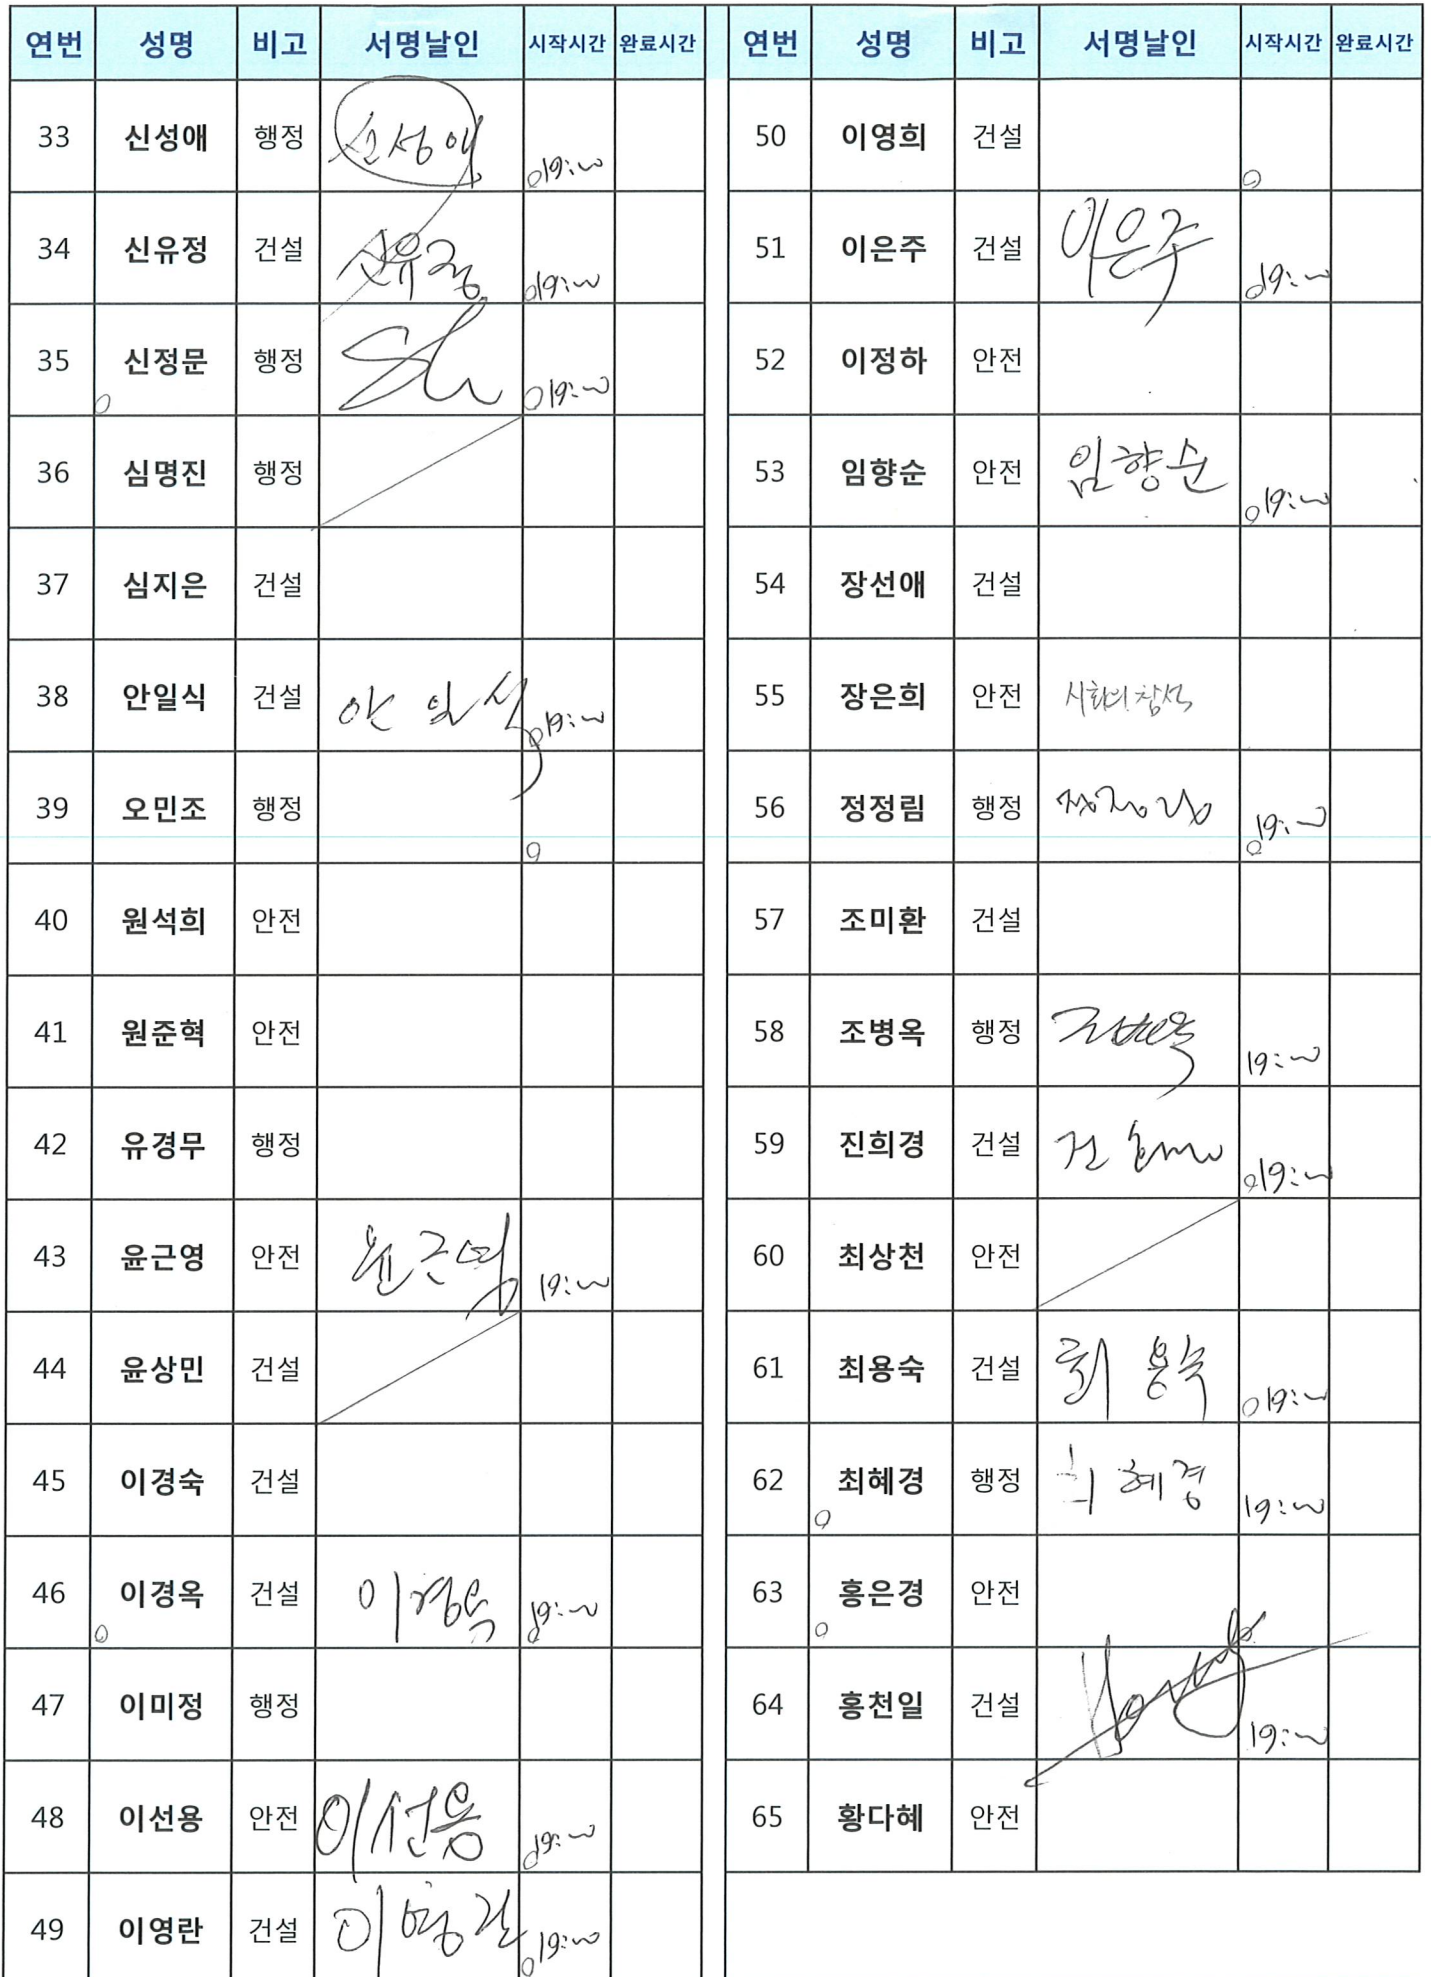 연번 성명 비고 서명날인 시작시간 완료시간
33 신성애 행정 신성애 19:00
34 신유정 건설 신유정 19:00
35 신정문 행정 19:00
36 심명진 행정
37 심지은 건설
38 안일식 건설 안일식 19:00
39 오민조 행정
40 원석희 안전
41 원준혁 안전
42 유경무 행정
43 윤근영 안전 윤근영 19:00
44 윤상민 건설
45 이경숙 건설
46 이경옥 건설 이경옥 19:00
47 이미정 행정
48 이선용 안전 이선용 19:00
49 이영란 건설 이영란 19:00
연번 성명 비고 서명날인 시작시간 완료시간
50 이영희 건설
51 이은주 건설 이은주 19:00
52 이정하 안전
53 임향순 안전 임향순 19:00
54 장선애 건설
55 장은희 안전 시회의 참석
56 정정림 행정 정정림 19:00
57 조미환 건설
58 조병옥 행정 조병옥 19:00
59 진희경 건설 19:00
60 최상천 안전
61 최용숙 건설 최용숙 19:00
62 최혜경 행정 최혜경 19:00
63 홍은경 안전
64 홍천일 건설 19:00
65 황다혜 안전